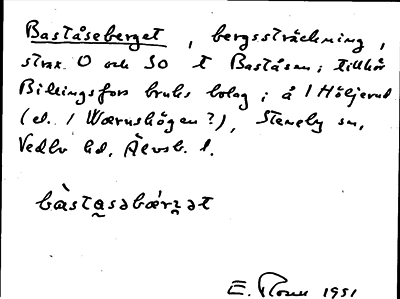 Baståseberget, bergssträckning,
strax O och SO t Baståsen; tillhör
Billingsfors bruks bolag; å 1 Höljerud
(el. 1 Wærnshögen?), Steneby sn,
Vedbo hd, Älvsb. l.
bàstasəbærʒət
E. 1951